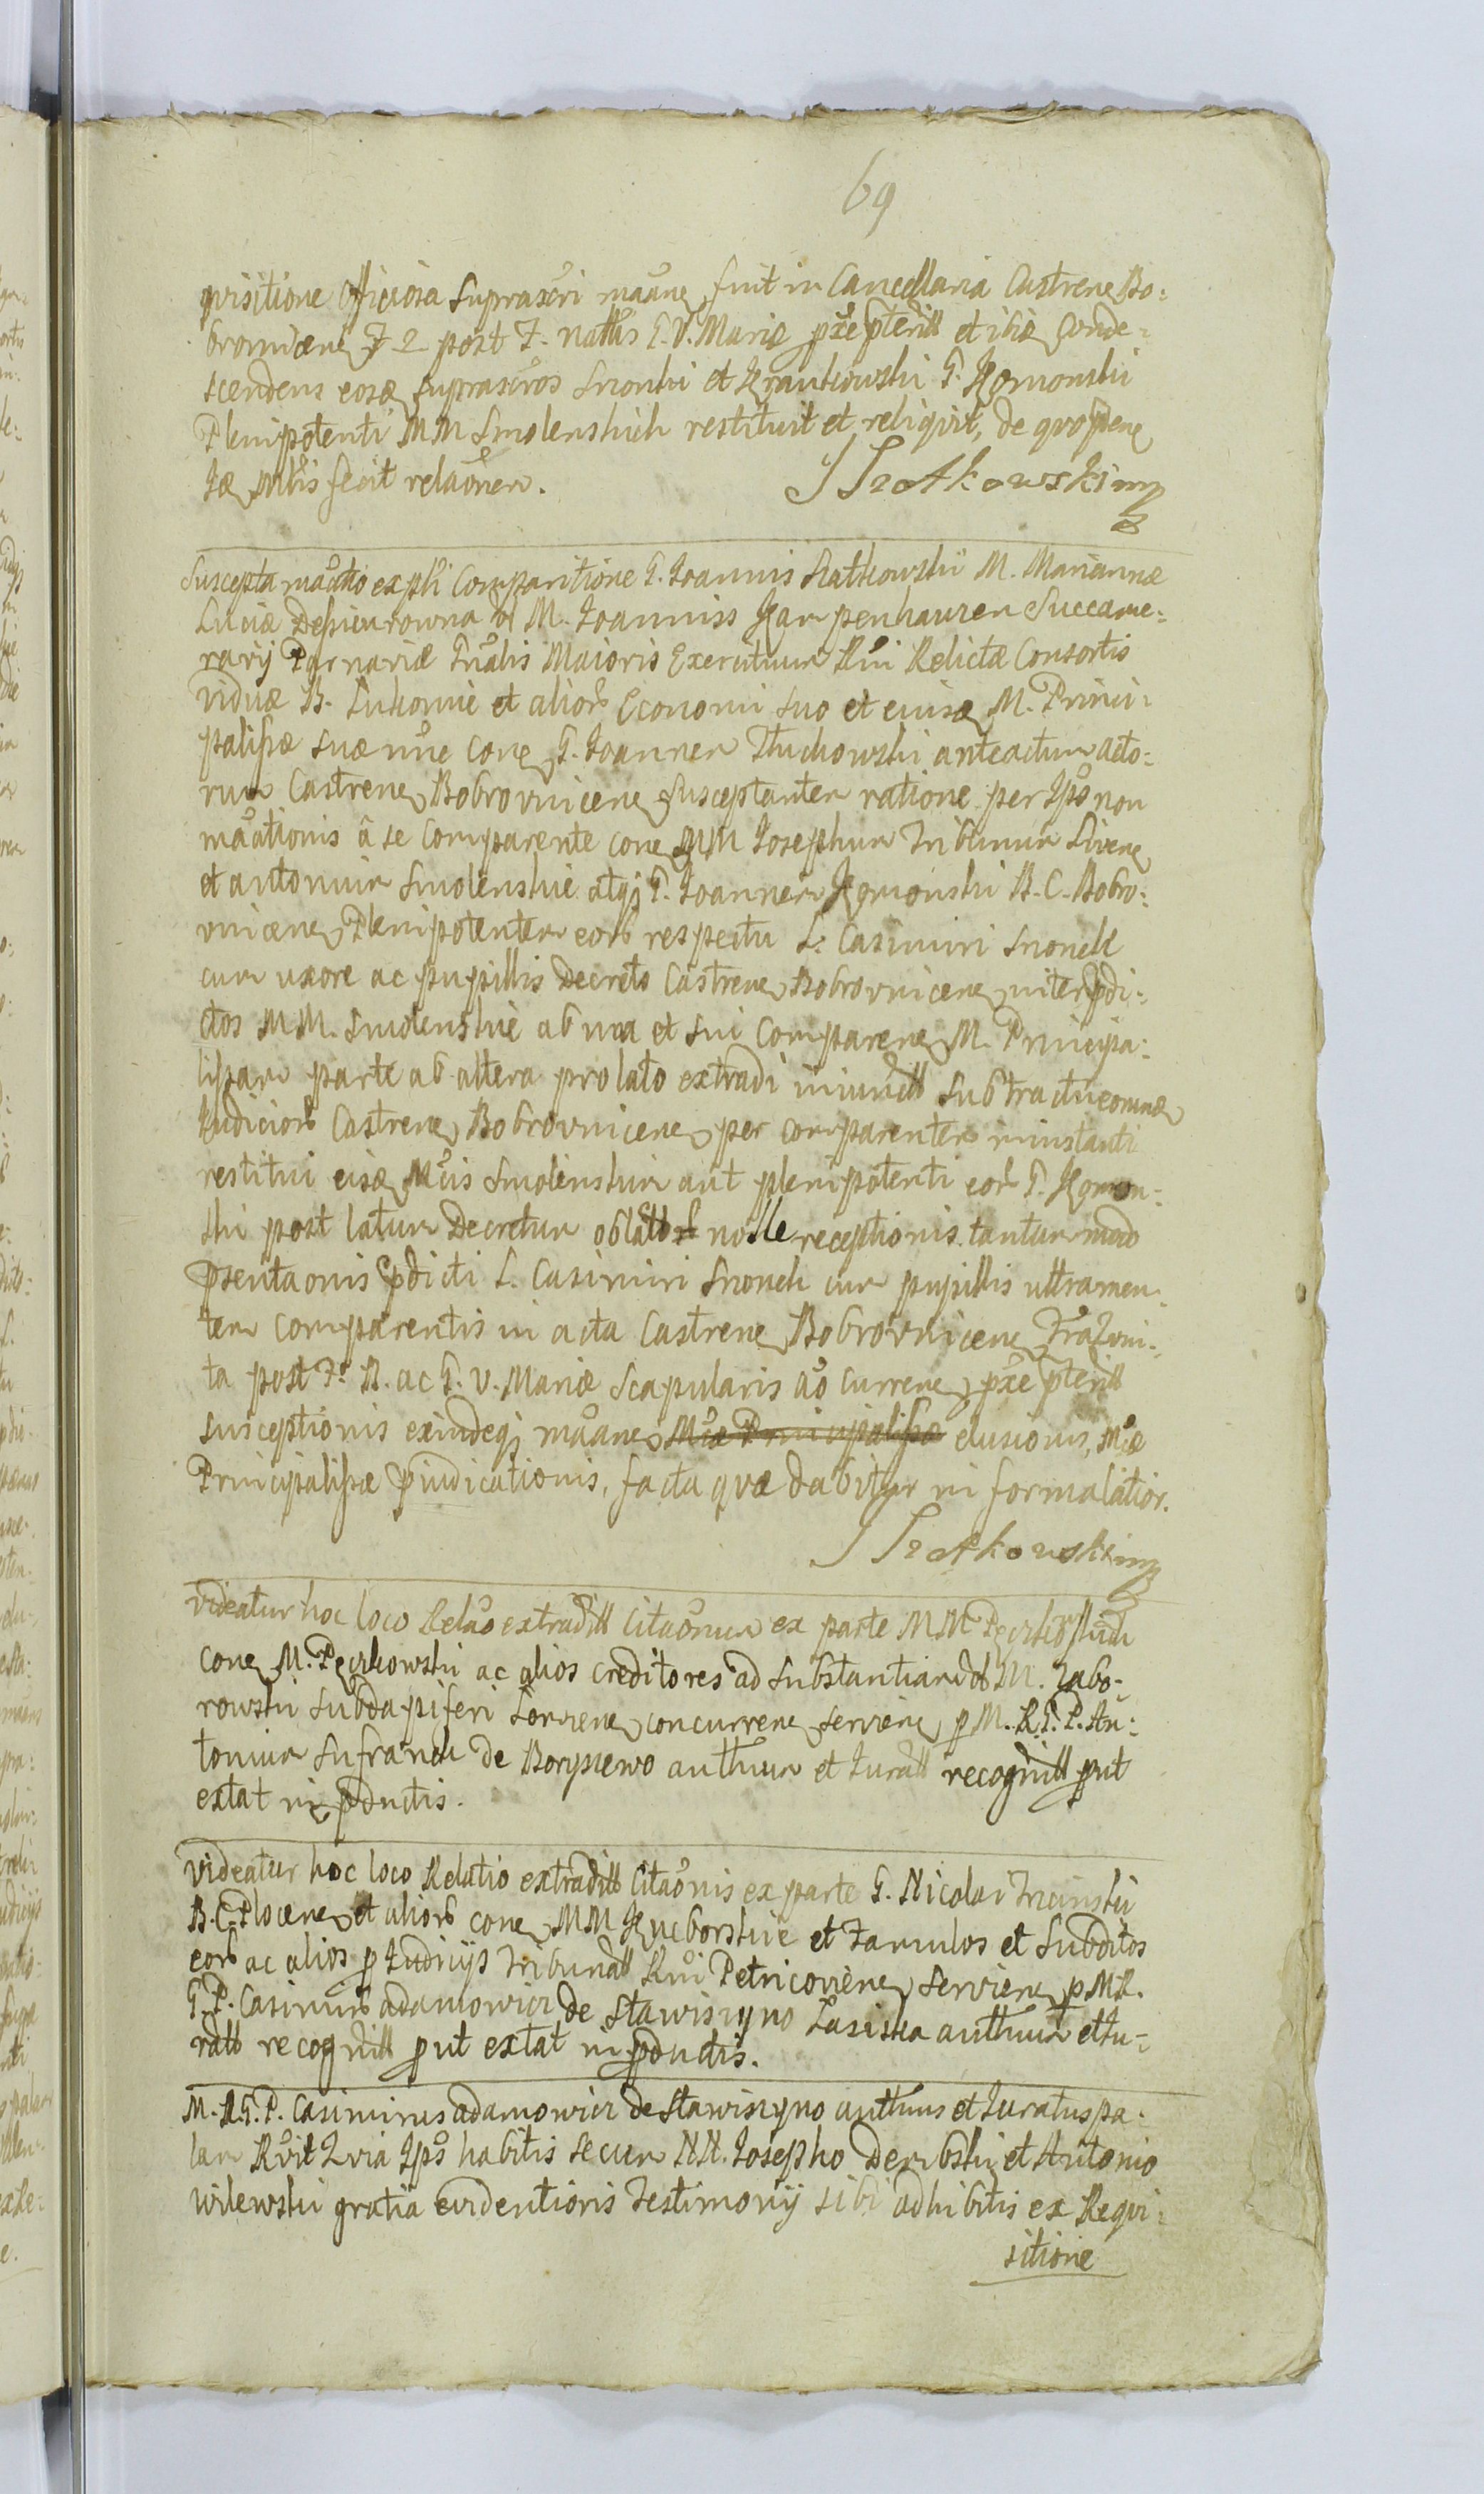 69
qvisitione Officiosa Suprascri maane fuit in Cancellaria Castrene Bo:
brovnicene F 2 post F. Nattis B. V. Mariæ pxe pteritt et ibiæ Conde:
scendens eosæ suprascros Snonki et Krankowski G. Komonski
Plenipotenti MM Smolenskich restituit et reliqvit, de qvo pene
Jæ Mtis fecit relaonem.
J Szotkowski mp
Suscepta maatio ex pti Comparitione G. Joannis Ratkowski M. Mariannæ
Luciæ Depieurowna M. Joanniss Kampenhauzen Succame:
rarij Parnaviæ Gnalis Maioris Exercituum Rni Relictæ Consortis
viduæ B. et alior Economi suo et eiusæ M. Princi:
palissæ suæ nne cone G. Joannem Stuchowski anteactum acto:
rum Castrene Bobrovnicene Susceptantem ratione per Ips non
maationis à se Comparente cone MM Josephum Tribunum Livene
et Antonium Smolenskie atqj G. Joannem Komonski B. C. Bobro:
vnicene Plenipotentem eorb respectu L. Casimiri Snonek
cum uxore ac pupillis Decreto Castrene Bobrovnicene inter pdi:
ctos MM. Smolenskie ab una et sui Comparene M. Principa:
lissam parte ab altera prolato extradi iniunctt sub tractu eorunæ
Judiciorb Castrene Bobrovnicene per comparentem in instanti
restitui eisæ Mcis Smolenskim aut plenipotenti eorb G. Komon:
ski post latum Decretum oblatt nolle receptionis tantum modo
psentaonis pdicti L. Casimiri Snonek cum pupillis ultramen:
tem comparentis in acta Castrene Bobrovnicene
ta post F. N. ac G. V. Mariæ Scapularis ao currene pxe pteritt
susceptionis exindeqj maane elusionis, Mcæ
Principalissæ pindicationis, facta qvæ dabitur in forma latior.
J Szotkowski mp
videatur hoc loco Relao extraditt Citaonum ex parte MM
cone M. Pęcikowski ac alios creditores ad substantiam M. Zabo-
rowski Subdapiferi concurrene serviene p M. R. G. P. An:
tonium Sufranek de Borysiewo authum et Juratt recognitt put
extat in pductis.
videatur hoc loco Relatio extraditt Citaonis ex parte G. Nicolai Trzcinski
B. C. Plocene et aliorb cone MM Kucborskie et Famulos et Subditos
eorb ac alios p Judicijs Tribunatt Rni Petricoviene serviene p M. R.
G. P. Casimirb Adamowicz de Stawiszyno Lasiska authum et Ju:
ratb recognitt put extat in pductis.
M. R. G. P. Casimirus Adamowicz de Stawiszyno authus et Juratus pa:
lam Rvit Qvia Ips habitis secum NN. Josepho Dembski et Antonio
Wilewski gratia evidentioris Testimonij sibi adhibitis ex Reqvi:
sitione